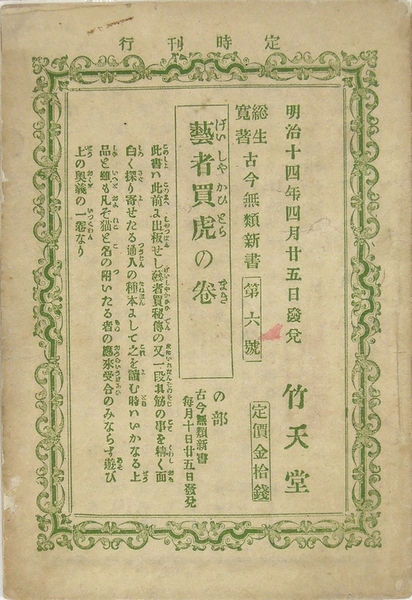 定時刊行
明治十四年四月廿五日發兌 竹天堂
総生寛著 古今無類新書 第六號 定價金拾錢
藝者買虎の巻
げいしやかひとらのまき
の部
古今無類新書
毎月十日廿五日發兌
此書ハ此前ニ出板せし藝者買秘傳の又一段其筋の事を精く面
白く探り寄せたる通人の種本にして之を讀む時ハいかなる上
品と雖も凡そ猫と名の附いたる者の應來受合のみならず遊び
上の奥義の一巻なり